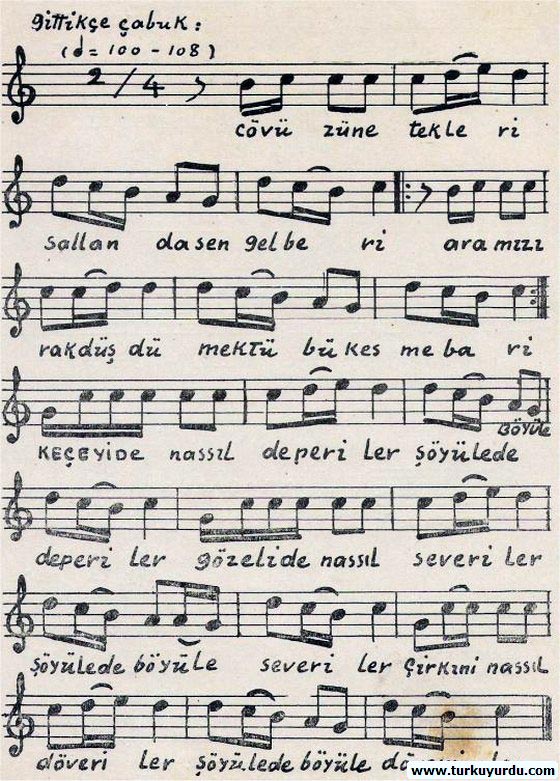 gittikçe çabuk:
(♩= 100 - 108)
2/4
cövü züne tekle ri
sallan dasen gelbe ri aramızı
rakdüş dü mektü bükes me ba ri
böyüle
KEÇEYİDE nassıl deperi ler şöyülede
deperi ler gözelide nassıl severi ler
şöyülede böyüle severi ler çirkini nassıl
döveri ler şöyülede böyüle
www.turkuyurdu.com